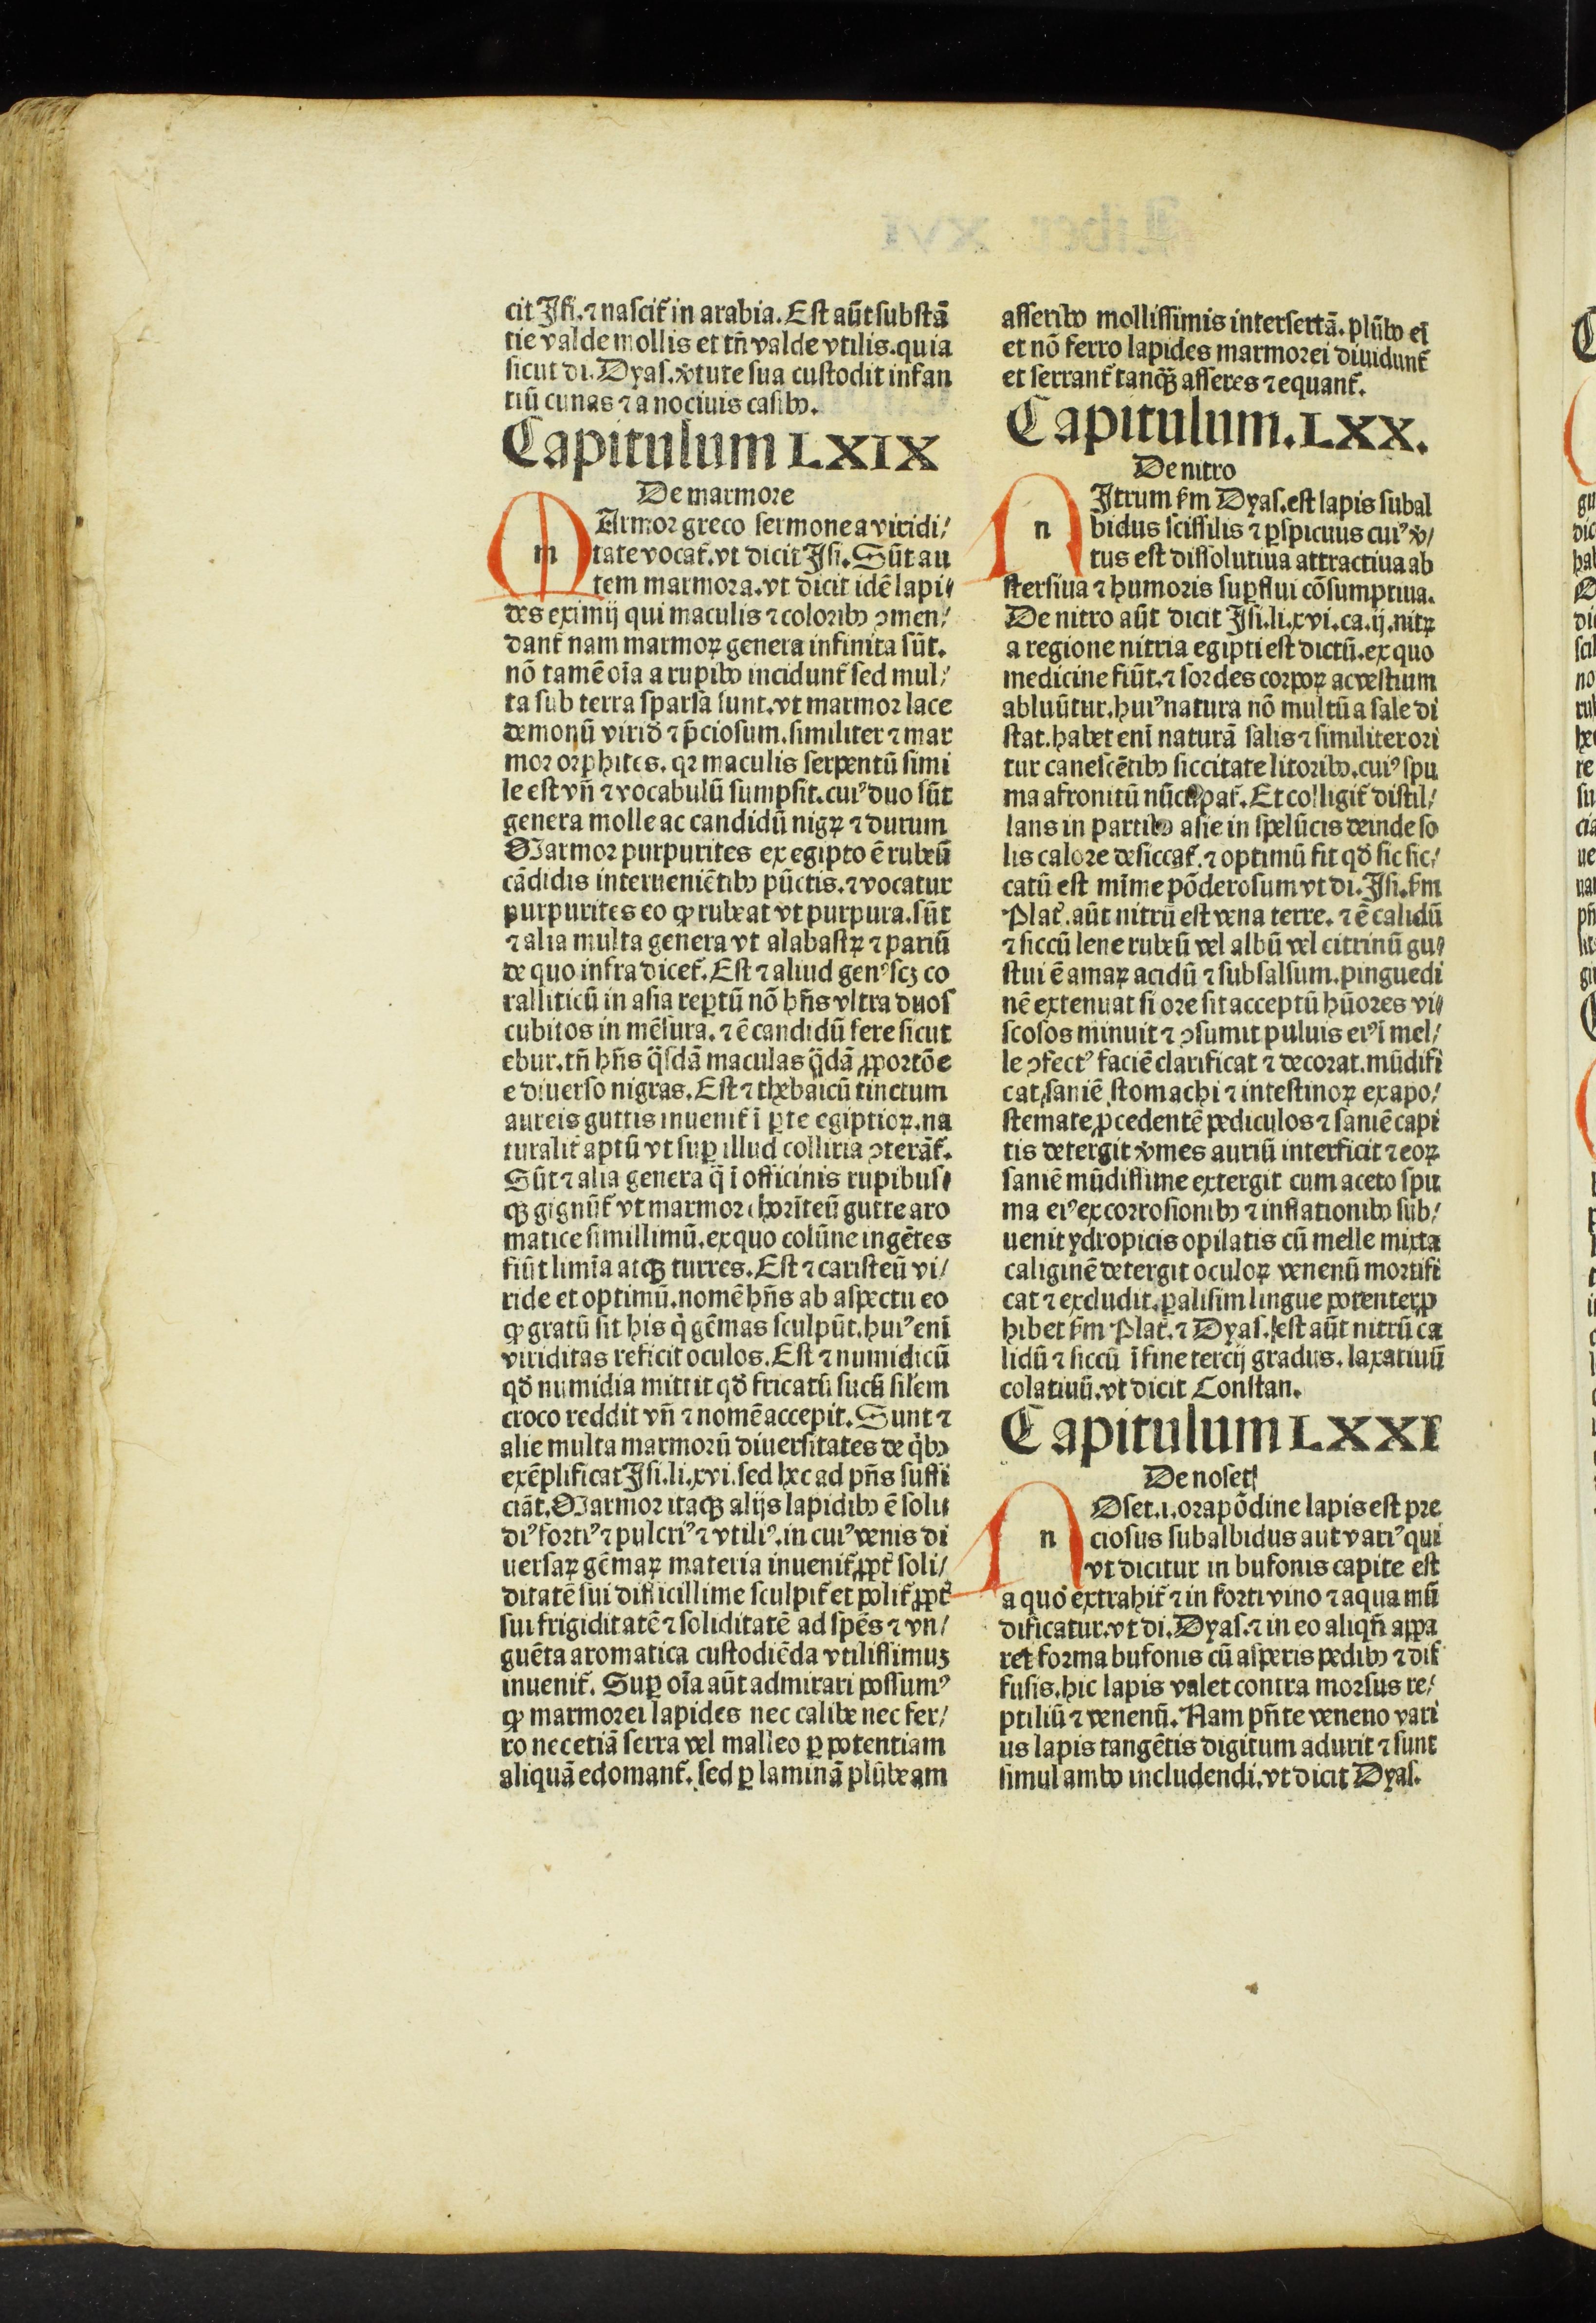 cit Iſi. ⁊ naſcit᷑ in arabia. Eſt aūt ſubſtā
tie valde mollis et tn̄ valde vtilis. quia
ſicut di. Dyaſ. v̓tute ſua cuſtodit infan
tiū cunas ⁊ a nociuis caſibꝫ.
Capitulum LXIX
De marmore
m Armor greco ſermone a viridi/
tate vocat᷑. vt dicit Iſi. Sūt au
tem marmora. vt dicit idē lapi/
des eximij qui maculis ⁊ coloribꝫ ꝯmen/
dant᷑ nam marmoꝝ genera infinita ſūt.
nō tamē oīa a rupibꝫ incidunt᷑ ſed mul/
ta ſub terra ſparſa ſunt. vt marmor lace
demonū virid̓ ⁊ p̄cioſum. ſimiliter ⁊ mar
mor orphites. qꝛ maculis ſerpentū ſimi
le eſt vn̄ ⁊ vocabulū ſumpſit. cuiꝰ duo ſūt
genera molle ac candidū nigꝝ ⁊ durum
Marmor purpurites ex egipto ē rubeū
cādidis interueniētibꝫ pūctis. ⁊ vocatur
purpurites eo ꝙ rubeat vt purpura. ſūt
⁊ alia multa genera vt alabaſtꝝ ⁊ pariū
de quo infra dicet᷑. Eſt ⁊ aliud genꝰ ſcꝫ co
ralliticū in aſia reꝑtū nō hn̄s vltra duoſ
cubitos in mēſura. ⁊ ē candidū fere ſicut
ebur. tn̄ hn̄s q̄ſdā maculas q̄dā ꝓportōe
e diuerſo nigras. Eſt ⁊ thebaicū tinctum
aureis guttis inuenit᷑ ī ꝑte egiptioꝝ. na
turalit᷑ aptū vt ſuꝑ illud colliria ꝯterāt᷑.
Sūt ⁊ alia genera q̄ ī officinis rupibuſ/
qꝫ gignūt᷑ vt marmor thorīteū gutte aro
matice ſimillimū. ex quo colūne ingētes
fiūt limīa atqꝫ turres. Eſt ⁊ cariſteū vi/
ride et optimū. nomē hn̄s ab aſpectu eo
ꝙ gratū ſit his q̇ gēmas ſculpūt. huiꝰ enī
viriditas reficit oculos. Eſt ⁊ numidicū
qd̓ numidia mittit qd̓ fricatū ſuccū ſilem
croco reddit vn̄ ⁊ nomē accepit. Sunt ⁊
alie multa marmorū diuerſitates de q̇bꝫ
exēplificat Iſi. li. xvi. ſed hec ad pn̄s ſuffi
ciāt. Marmor itaqꝫ alijs lapidibꝫ ē ſoli/
diꝰ fortiꝰ ⁊ pulcriꝰ ⁊ vtiliꝰ. in cuiꝰ venis di
uerſaꝝ gēmaꝝ materia inuenit᷑ ꝓpt̓ ſoli/
ditatē ſui difficillime ſculpit᷑ et polit᷑ ꝓpt̓
ſui frigiditatē ⁊ ſoliditatē ad ſpēs ⁊ vn/
guēta aromatica cuſtodiēda vtiliſſimuꝫ
inuenit᷑. Suꝑ oīa aūt admirari poſſumꝰ
ꝙ marmorei lapides nec calibe nec fer/
ro nec etiā ſerra vel malleo ꝑ potentiam
aliquā edomant᷑. ſed ꝑ laminā plūbeam
aſſeribꝫ molliſſimis interſertā. plūbo eī
et nō ferro lapides marmorei diuidunt᷑
et ſerrant᷑ tanqꝫ aſſeres ⁊ equant᷑.
Capitulum. LXX.
De nitro
n Itrum ẜm Dyaſ. eſt lapis ſubal
bidus ſciſſilis ⁊ ꝑſpicuus cuiꝰ v̓/
tus eſt diſſolutiua attractiua ab
ſterſiua ⁊ humoris ſuꝑflui cōſumptiua.
De nitro aūt dicit Iſi. li. xvi. ca. ij. nitꝝ
a regione nitria egipti eſt dictū. ex quo
medicine fiūt. ⁊ ſordes corpoꝝ ac veſtium
abluūtur. huiꝰ natura nō multū a ſale di
ſtat. habet enī naturā ſalis ⁊ ſimiliter ori
tur caneſcētibꝫ ſiccitate litoribꝫ. cuiꝰ ſpu
ma afronitū nūcupat᷑. Et colligit᷑ diſtil/
lans in partibꝫ aſie in ſpelūcis deinde ſo
lis calore deſiccat᷑. ⁊ optimū fit qd̓ ſic ſic/
catū eſt mīme pōderoſum vt di. Iſi. ẜm
Plat̓. aūt nitrū eſt vena terre. ⁊ ē calidū
⁊ ſiccū lene rubeū vel albū vel citrinū gu/
ſtui ē amaꝝ acidū ⁊ ſubſalſum. pinguedi
nē extenuat ſi ore ſit acceptū hūores vi/
ſcoſos minuit ⁊ ꝯſumit puluis eiꝰ ī mel/
le ꝯfectꝰ faciē clarificat ⁊ decorat. mūdifi
cat ſaniē ſtomachi ⁊ inteſtinoꝝ ex apo/
ſtemate ꝓcedentē pediculos ⁊ ſaniē capi
tis detergit v̓mes auriū interficit ⁊ eoꝝ
ſaniē mūdiſſime extergit cum aceto ſpu
ma eiꝰ ex corroſionibꝫ ⁊ inflationibꝫ ſub/
uenit ydropicis opilatis cū melle mixta
caliginē detergit oculoꝝ venenū mortifi
cat ⁊ excludit. ꝑaliſim lingue potenter ꝓ
hibet ẜm Plat̓. ⁊ Dyaſ. eſt aūt nitrū ca
lidū ⁊ ſiccū ī fine tercij gradus. laxatiuū
colatiuū. vt dicit Conſtan.
Capitulum LXXI
De noſet
n Oſet. i. orapōdine lapis eſt pre
cioſus ſubalbidus aut variꝰ qui
vt dicitur in bufonis capite eſt
a quo extrahit᷑ ⁊ in forti vino ⁊ aqua mū
dificatur. vt di. Dyaſ. ⁊ in eo aliqn̄ appa
ret forma bufonis cū aſperis pedibꝫ ⁊ dif
fuſis. hic lapis valet contra morſus re/
ptiliū ⁊ venenū. Nam pn̄te veneno vari
us lapis tangētis digitum adurit ⁊ ſunt
ſimul ambo includendi. vt dicit Dyaſ.